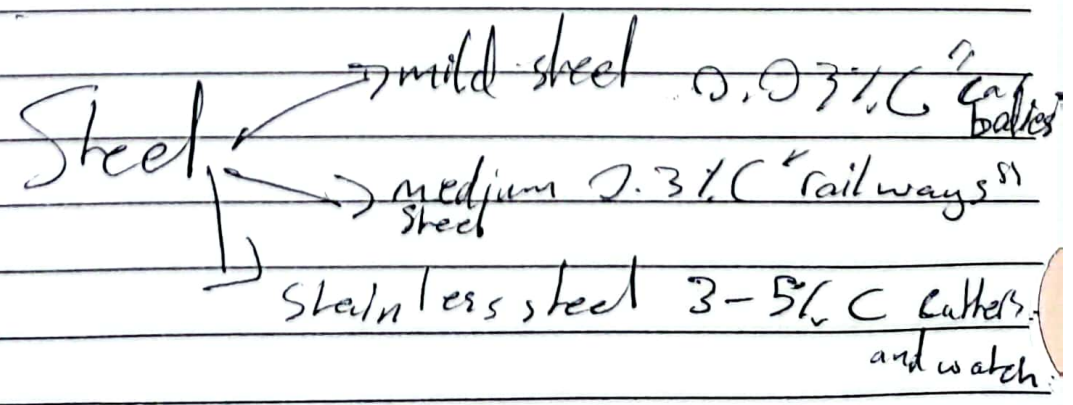 Steel → mild steel 0.03% C "car bodies"
→ medium steel 0.3% C "railways"
→ Stainless steel 3-5% C cutters
and watch